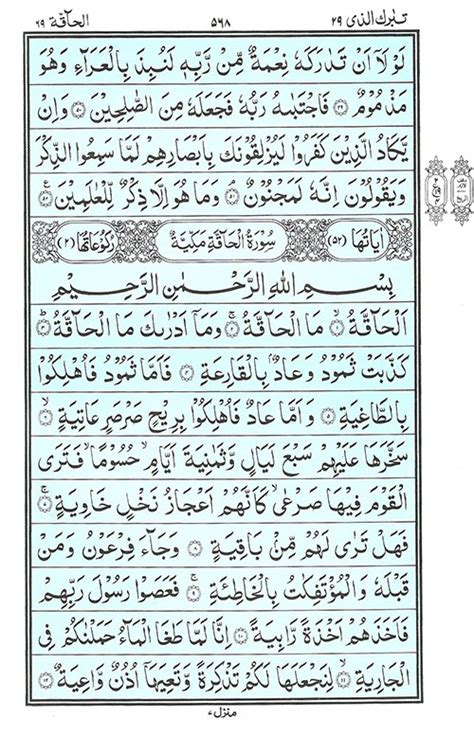 تبٰرك الذى ٢٩ ٥٦٨ الحآقة ٦٩
لَوْلَاۤ اَنْ تَدٰرَكَهٗ نِعْمَةٌ مِّنْ رَّبِّهٖ لَنُبِذَ بِالْعَرَآءِ وَهُوَ
مَذْمُوْمٌ ۝٤٩ فَاجْتَبٰىهُ رَبُّهٗ فَجَعَلَهٗ مِنَ الصّٰلِحِيْنَ ۝٥٠ وَاِنْ
يَّكَادُ الَّذِيْنَ كَفَرُوْا لَيُزْلِقُوْنَكَ بِاَبْصَارِهِمْ لَمَّا سَمِعُوا الذِّكْرَ
وَيَقُوْلُوْنَ اِنَّهٗ لَمَجْنُوْنٌ ۝٥١ وَمَا هُوَ اِلَّا ذِكْرٌ لِّلْعٰلَمِيْنَ ۝٥٢
اٰيَاتُهَا (٥٢) سُوْرَةُ الْحَآقَّةِ مَكِّيَّةٌ رُكُوْعَاتُهَا (٢)
بِسْمِ اللهِ الرَّحْمٰنِ الرَّحِيْمِ
اَلْحَآقَّةُ ۝١ مَا الْحَآقَّةُ ۝٢ وَمَاۤ اَدْرٰىكَ مَا الْحَآقَّةُ ۝٣
كَذَّبَتْ ثَمُوْدُ وَعَادٌۢ بِالْقَارِعَةِ ۝٤ فَاَمَّا ثَمُوْدُ فَاُهْلِكُوْا
بِالطَّاغِيَةِ ۝٥ وَاَمَّا عَادٌ فَاُهْلِكُوْا بِرِيْحٍ صَرْصَرٍ عَاتِيَةٍ ۝٦
سَخَّرَهَا عَلَيْهِمْ سَبْعَ لَيَالٍ وَّثَمٰنِيَةَ اَيَّامٍ ۙ حُسُوْمًا ۙ فَتَرَى
الْقَوْمَ فِيْهَا صَرْعٰى ۙ كَاَنَّهُمْ اَعْجَازُ نَخْلٍ خَاوِيَةٍ ۝٧
فَهَلْ تَرٰى لَهُمْ مِّنْۢ بَاقِيَةٍ ۝٨ وَجَآءَ فِرْعَوْنُ وَمَنْ
قَبْلَهٗ وَالْمُؤْتَفِكٰتُ بِالْخَاطِئَةِ ۝٩ فَعَصَوْا رَسُوْلَ رَبِّهِمْ
فَاَخَذَهُمْ اَخْذَةً رَّابِيَةً ۝١٠ اِنَّا لَمَّا طَغَا الْمَآءُ حَمَلْنٰكُمْ فِى
الْجَارِيَةِ ۝١١ لِنَجْعَلَهَا لَكُمْ تَذْكِرَةً وَّتَعِيَهَاۤ اُذُنٌ وَّاعِيَةٌ ۝١٢
منزل ٧